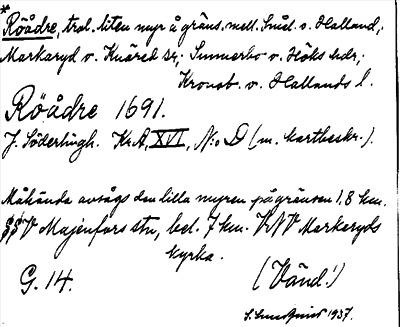 * Röådre, trol. liten myr å gräns. mell. Smål. o. Halland,
Markaryd o. Knäred sr; Sunnerbo o. Höks hdr;
Kronob. o. Hallands l.
Röådre 1691.
J. Söderlingh. Kr.A, XVI, N:o D (m. kartbeskr.).
Måhända avsågs den lilla myren på gränsen 1,8 km.
V Majenfors stn, bel. 7 km. VNV Markaryds
kyrka.
G. 14. (Vänd!)
S. Sundqvist 1937.